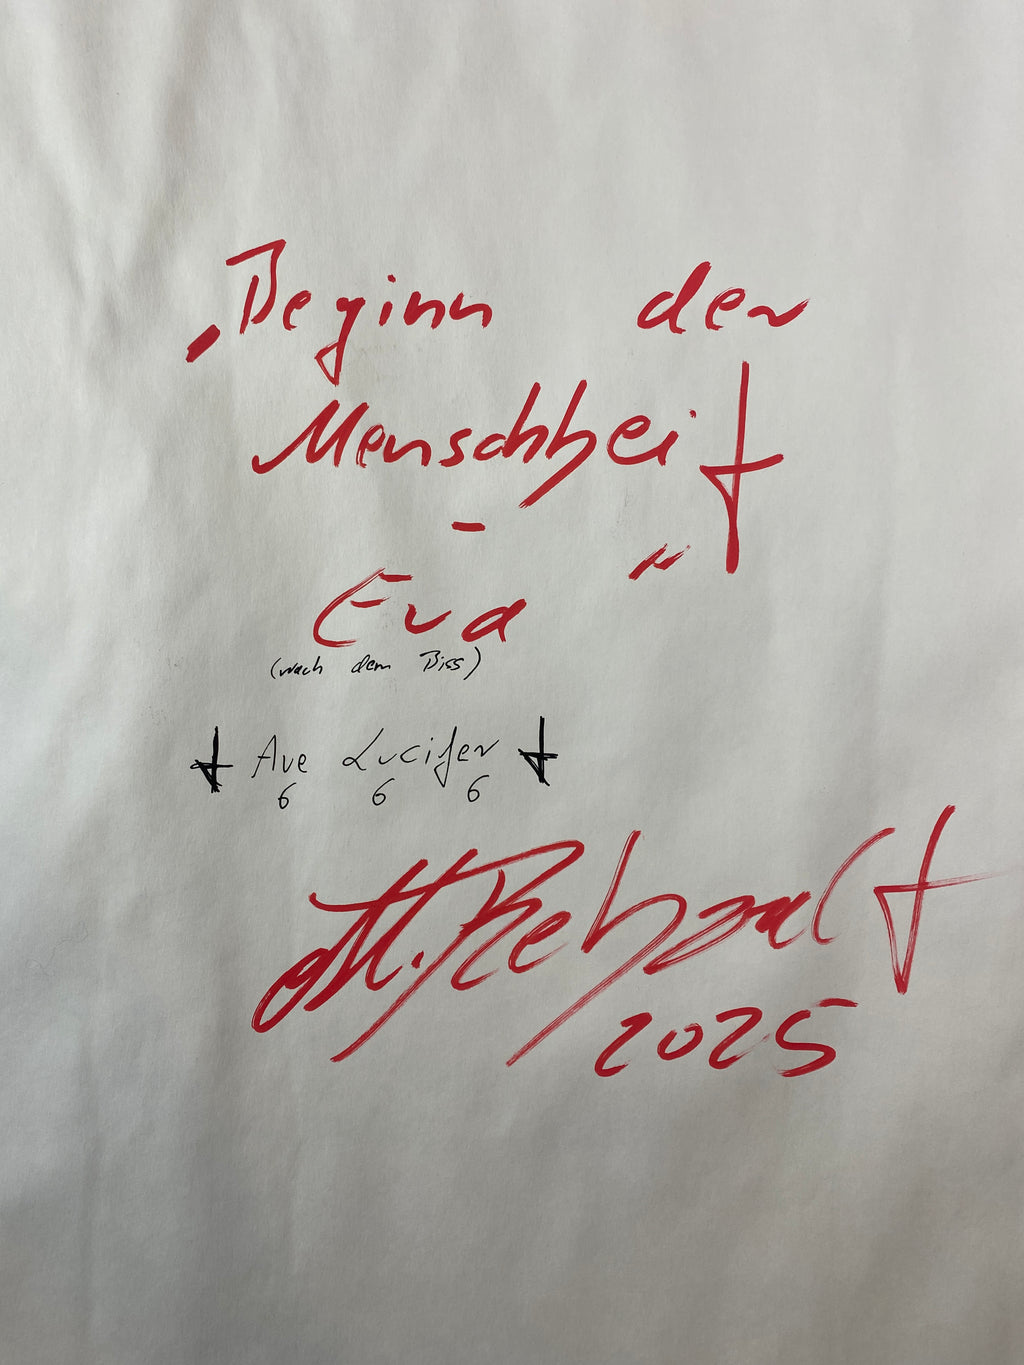 „Beginn der
Menschheit
-
Eva"
(nach dem Biss)
Ave Lucifer
6 6 6
M. Rehwalt
2025